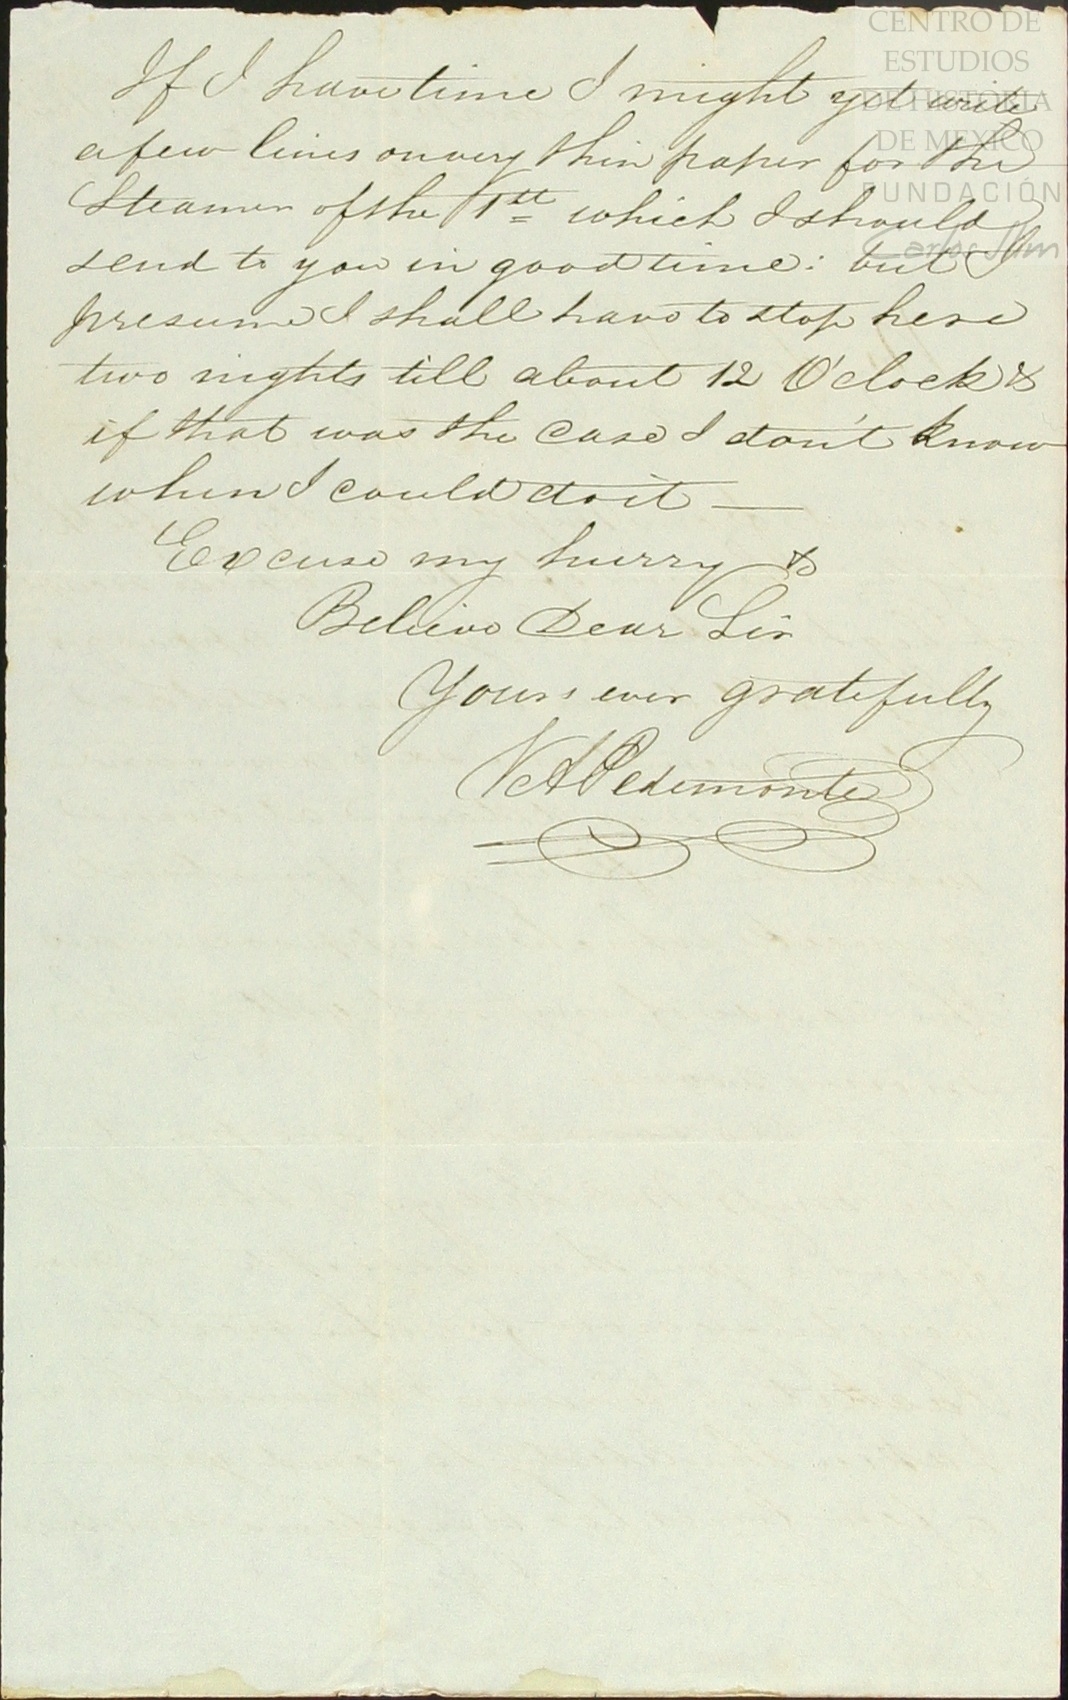 CENTRO DE
ESTUDIOS
DE HISTORIA
DE MEXICO
FUNDACIÓN
Carlos Slim
If I have time I might yet write
a few lines on very thin paper for the
Steamer of the 1st which I should
send to you in good time: but I
presume I shall have to stop here
two nights till about 12 O'clock &
if that was the case I don't know
when I could do it —
Excuse my hurry &
Believe Dear Sir
Yours ever gratefully
Pedemonte